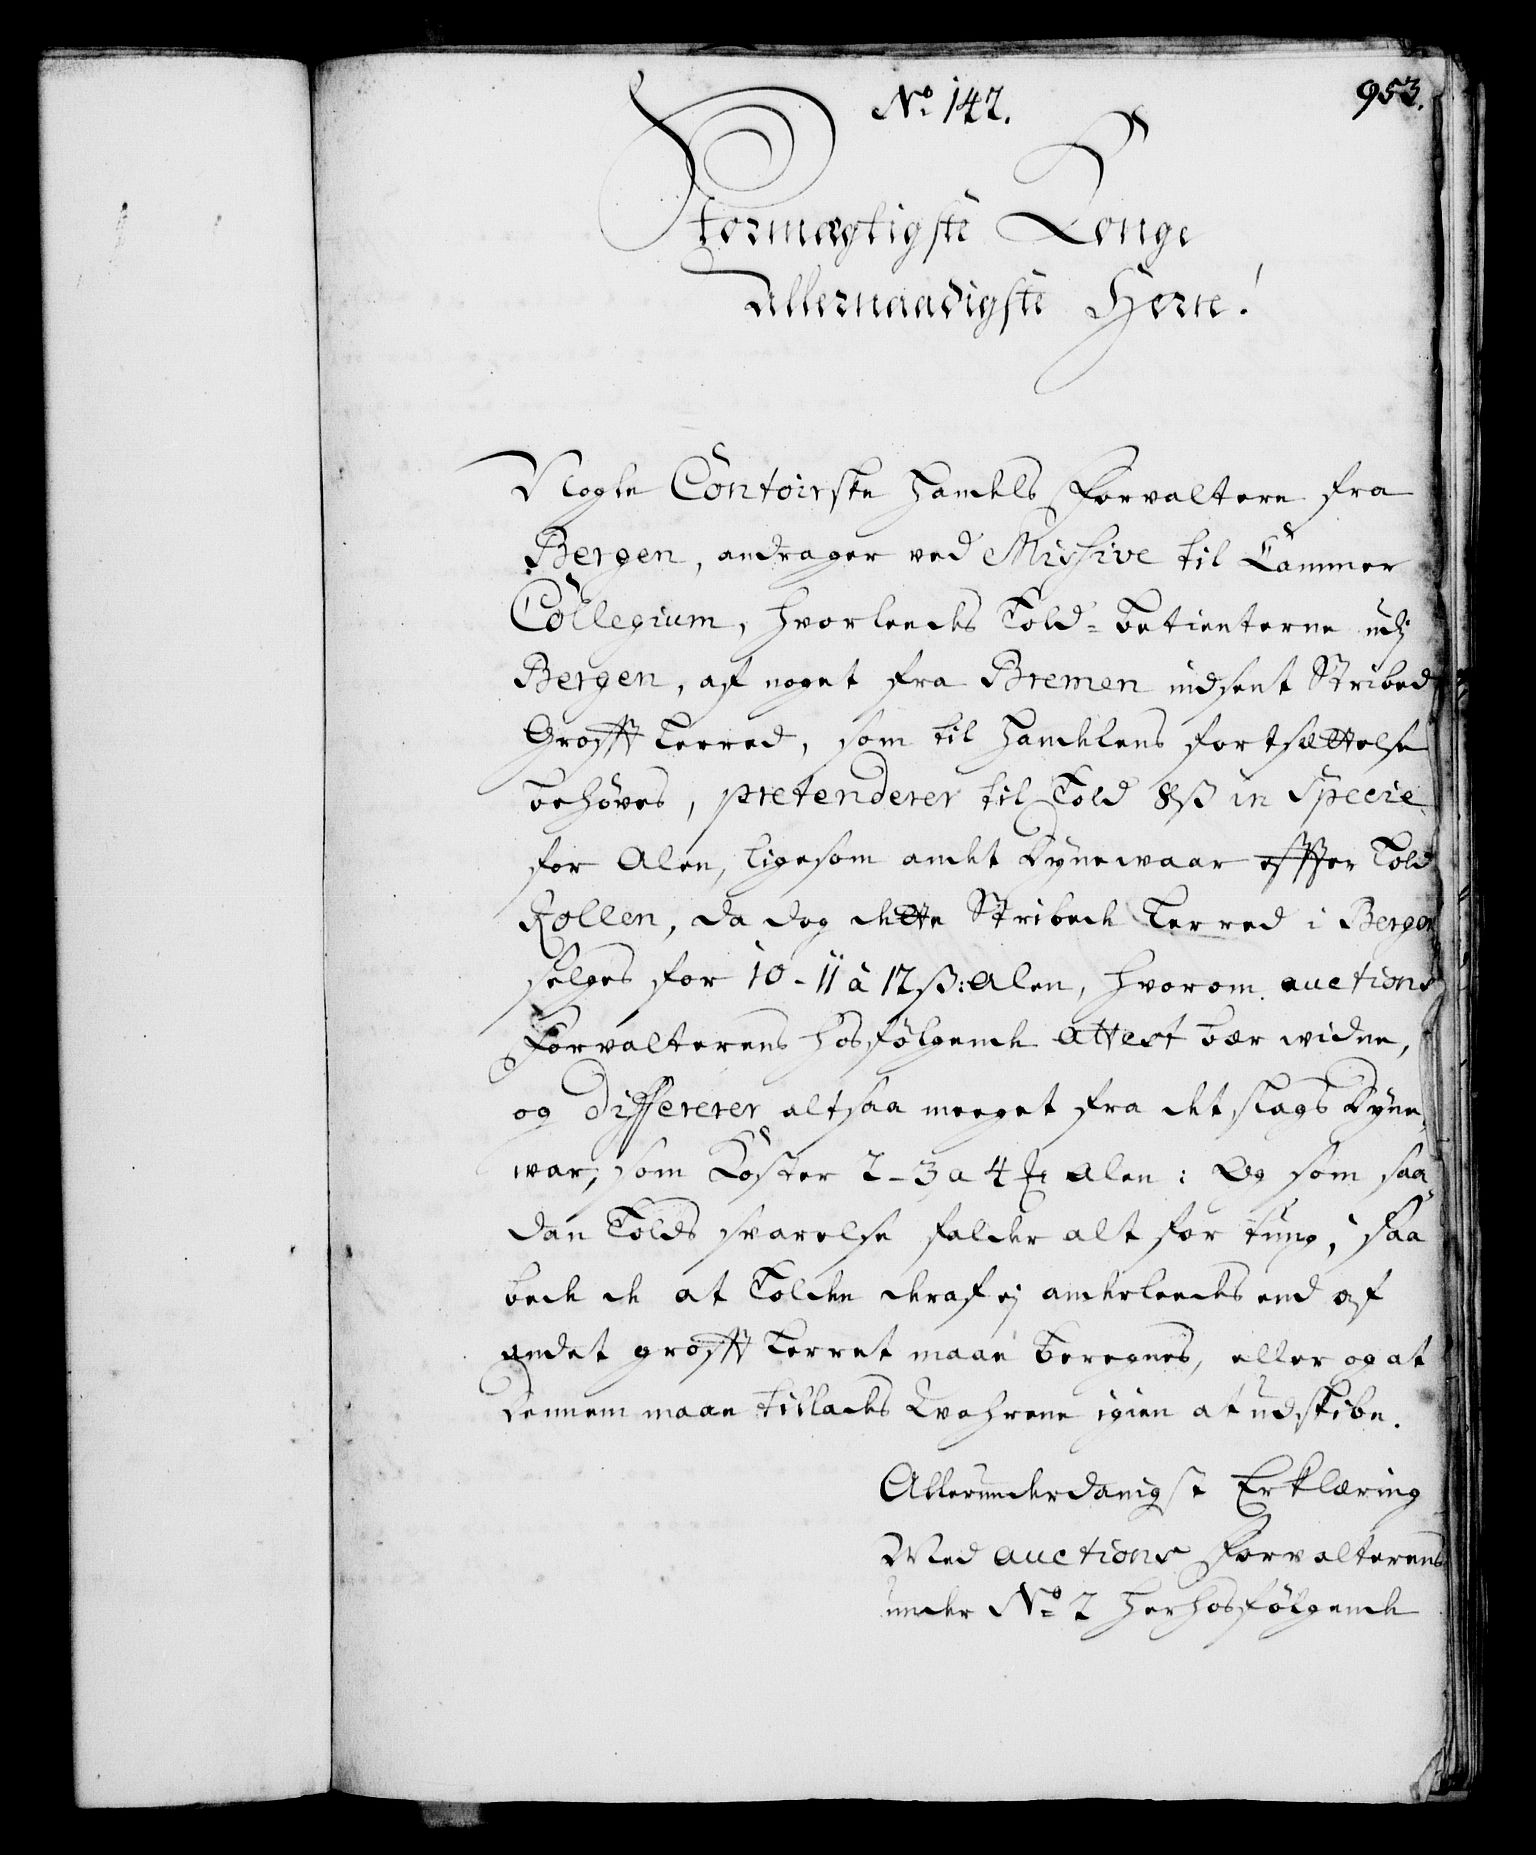 No 147.
953.
Stormægtigste Konge
Allernaadigste Herre!
Nogle Contoirske Handels Forvaltere fra
Bergen, andrager ved Missive til Cammer
Collegium, hvorleedes Told-betienterne udj
Bergen, af noget fra Bremen indsent Stribed
Groft Lerred, som til Handelens fortsættelse
behøves, prætenderer til Told 8 ß in Specie
for Alen, ligesom andet Dynewaar efter Told
Rollen, da dog dette Stribede Lerred i Bergen
selges for 10 - 11 à 12 ß: Alen, hvorom auctions
Forvalterens hosfølgende Attest bær widne,
og Differerer altsaa meeget fra det slags Dyne,
war, som Koster 2 - 3 a 4 Alen: Og som saa,
dan Tolds svarelse falder alt for tung, saa
bede de at Tolden deraf ej anderleedes end af
andet groft Lerret maae beregnes, eller og at
Dennem maae tillades Wahrene igien at udskibe.
Allerunderdanigst Erklæring
Med auctions Forvalterens
under No 2 herhosfølgende